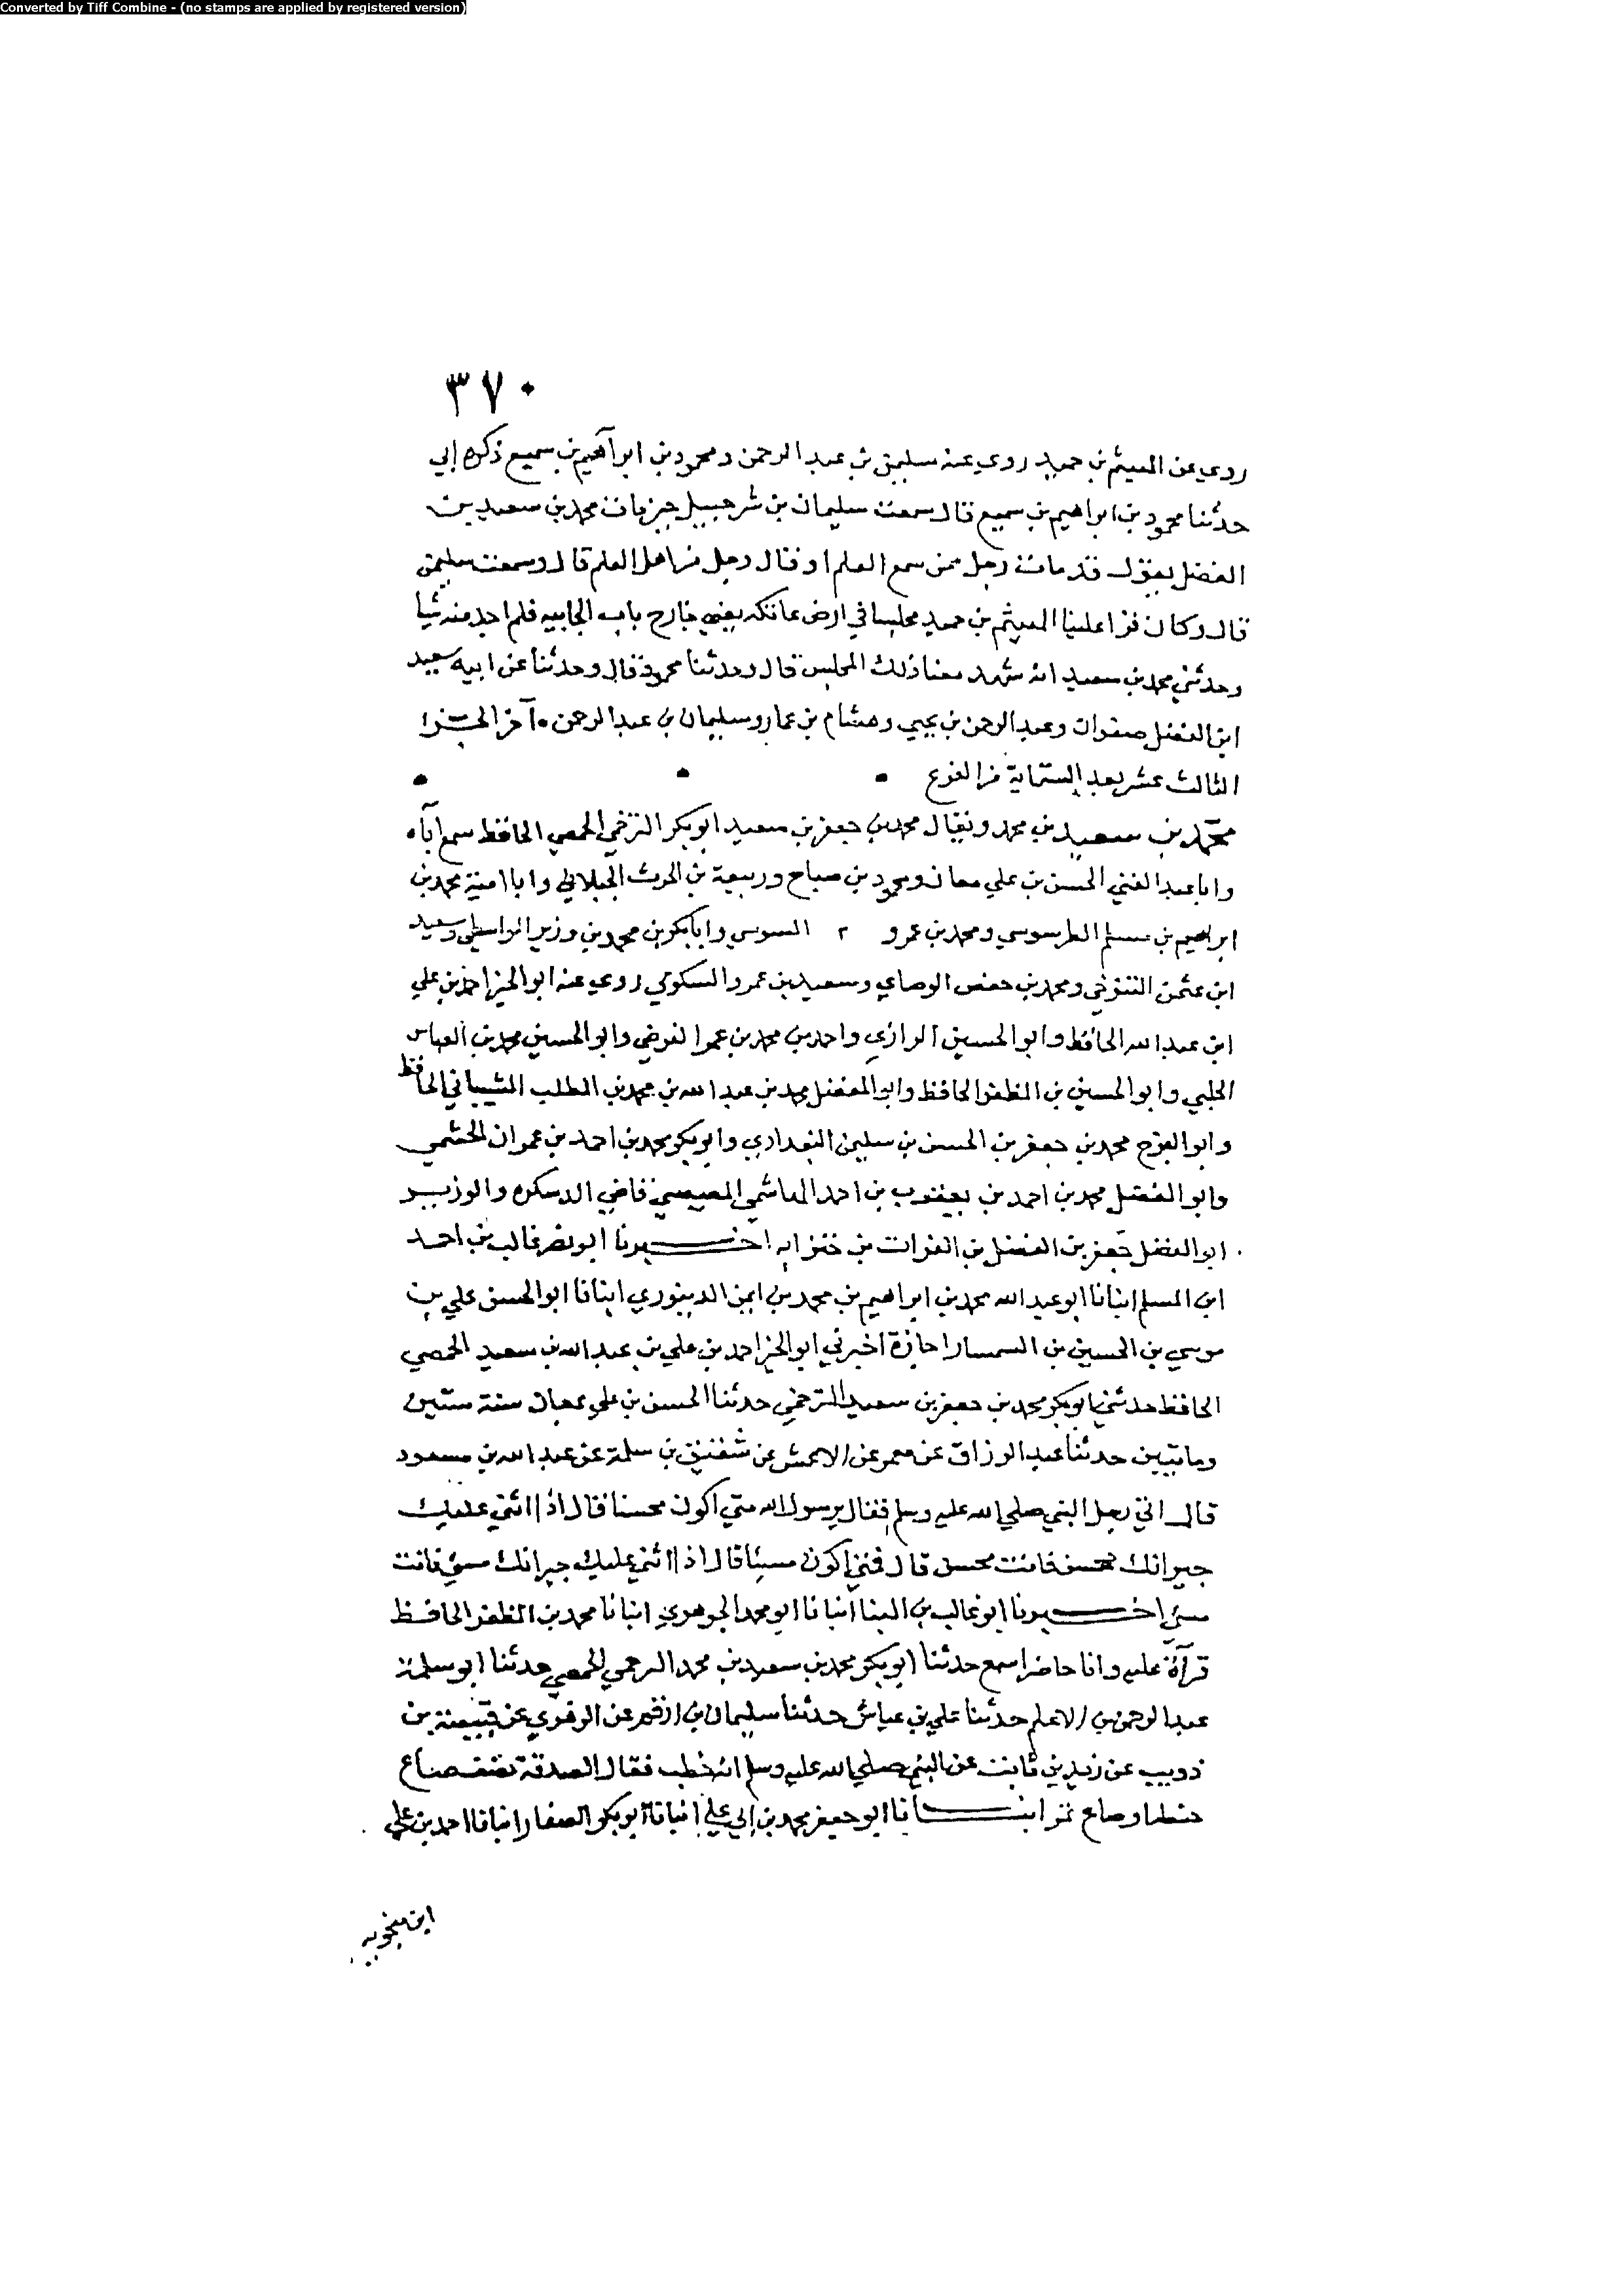 Converted by Tiff Combine - (no stamps are applied by registered version)
٣٧٠
روي عن الهيثم بن حميد روي عنه سليمن بن عبد الرحمن ومحمود بن ابراهيم بن سميع ذكره ابي
حدثنا محمود بن ابراهيم بن سميع قال سمعت سليمان بن شرحبيل حين مات محمد بن سعيد بن
الفضل يقول قد مات رجل ممن سمع العلم او قال رجل من اهل العلم قال وسمعت سليمن
قال وكان قرا علينا الهيثم بن حميد مجلسا في ارض عاتكه يعني خارج باب الجابيه فلم اجد منه شيا
وحدثني محمد بن سعيد انه شهد معنا ذلك المجلس قال وحدثنا محمود قال وحدثنا عن ابيه سعيد
ابن الفضل صفوان وعبد الرحمن بن يحيي وهشام بن عمار وسليمان بن عبد الرحمن ٥ آخر الجزا
الثالث عشر بعد الستماية من الفرع
محمد بن سعيد بن محمد ويقال محمد بن جعفر بن سعيد ابو بكر الترخمي الحمصي الحافظ سمع اباه
وابا عبد الغني الحسن بن علي معان ومحمود بن صباح وربيعة بن الحرث الجبلاني وابا امية محمد بن
ابراهيم بن مسلم الطرسوسي ومحمد بن عمرو ٢ السوسي وابا بكر بن محمد بن وزير الواسطي وسعيد
ابن عثمن التنوخي ومحمد بن حفص الوصابي وسعيد بن عمرو السكوني روي عنه ابو الخير احمد بن علي
ابن عبد الله الحافظ وابو الحسين الرازي واحمد بن محمد بن عمر الفرضي وابو الحسين محمد بن العباس
الحلبي وابو الحسين بن المظفر الحافظ وابو المفضل محمد بن عبد الله بن محمد بن المطلب الشيباني الحافظ
وابو الفرج محمد بن جعفر بن الحسن بن سليمن البغدادي وابو بكر محمد بن احمد بن عمران الجشمي
وابو الفضل محمد بن احمد بن يعقوب بن احمد الهاشمي المصيصي قاضي الدسكره والوزير
ابو الفضل جعفر بن الفضل بن الفرات بن خنزابه اخبرنا ابو نصر غالب بن احمد
ابن المسلم انبانا ابو عبد الله محمد بن ابراهيم بن محمد بن ايمن الدينوري انبانا ابو الحسن علي بن
موسي بن الحسين بن السمسار اجازة اخبرني ابو الخير احمد بن علي بن عبد الله بن سعيد الحمصي
الحافظ حدثني ابو بكر محمد بن جعفر بن سعيد الترخمي حدثنا الحسن بن علي معان سنة ستين
ومايتين حدثنا عبد الرزاق عن معمر عن الاعمش عن شقيق بن سلمة عن عبد الله بن مسعود
قال اتي رجل النبي صلي الله عليه وسلم فقال يرسول الله متي اكون محسنا قال اذا اثني عليك
جيرانك محسن فانت محسن قال فمتي اكون مسيئا قال اذا اثني عليك جيرانك مسئ فانت
مسئ اخبرنا ابو غالب بن البنا انبانا ابو محمد الجوهري انبانا محمد بن المظفر الحافظ
قرآة عليه وانا حاضر اسمع حدثنا ابو بكر محمد بن سعيد بن محمد الرحمي الحمصي حدثنا ابو سلمة
عبد الرحمن بن الاعلم حدثنا علي بن عياش حدثنا سليمان بن ارقم عن الزهري عن قبيصة بن
ذويب عن زيد بن ثابت عن النبي صلي الله عليه وسلم انه خطب فقال الصدقة نصف صاع
حنطه او صاع تمر انبانا ابو جعفر محمد بن ابي علي انبانا ابو بكر الصفار انبانا احمد بن علي
ابن منجويه